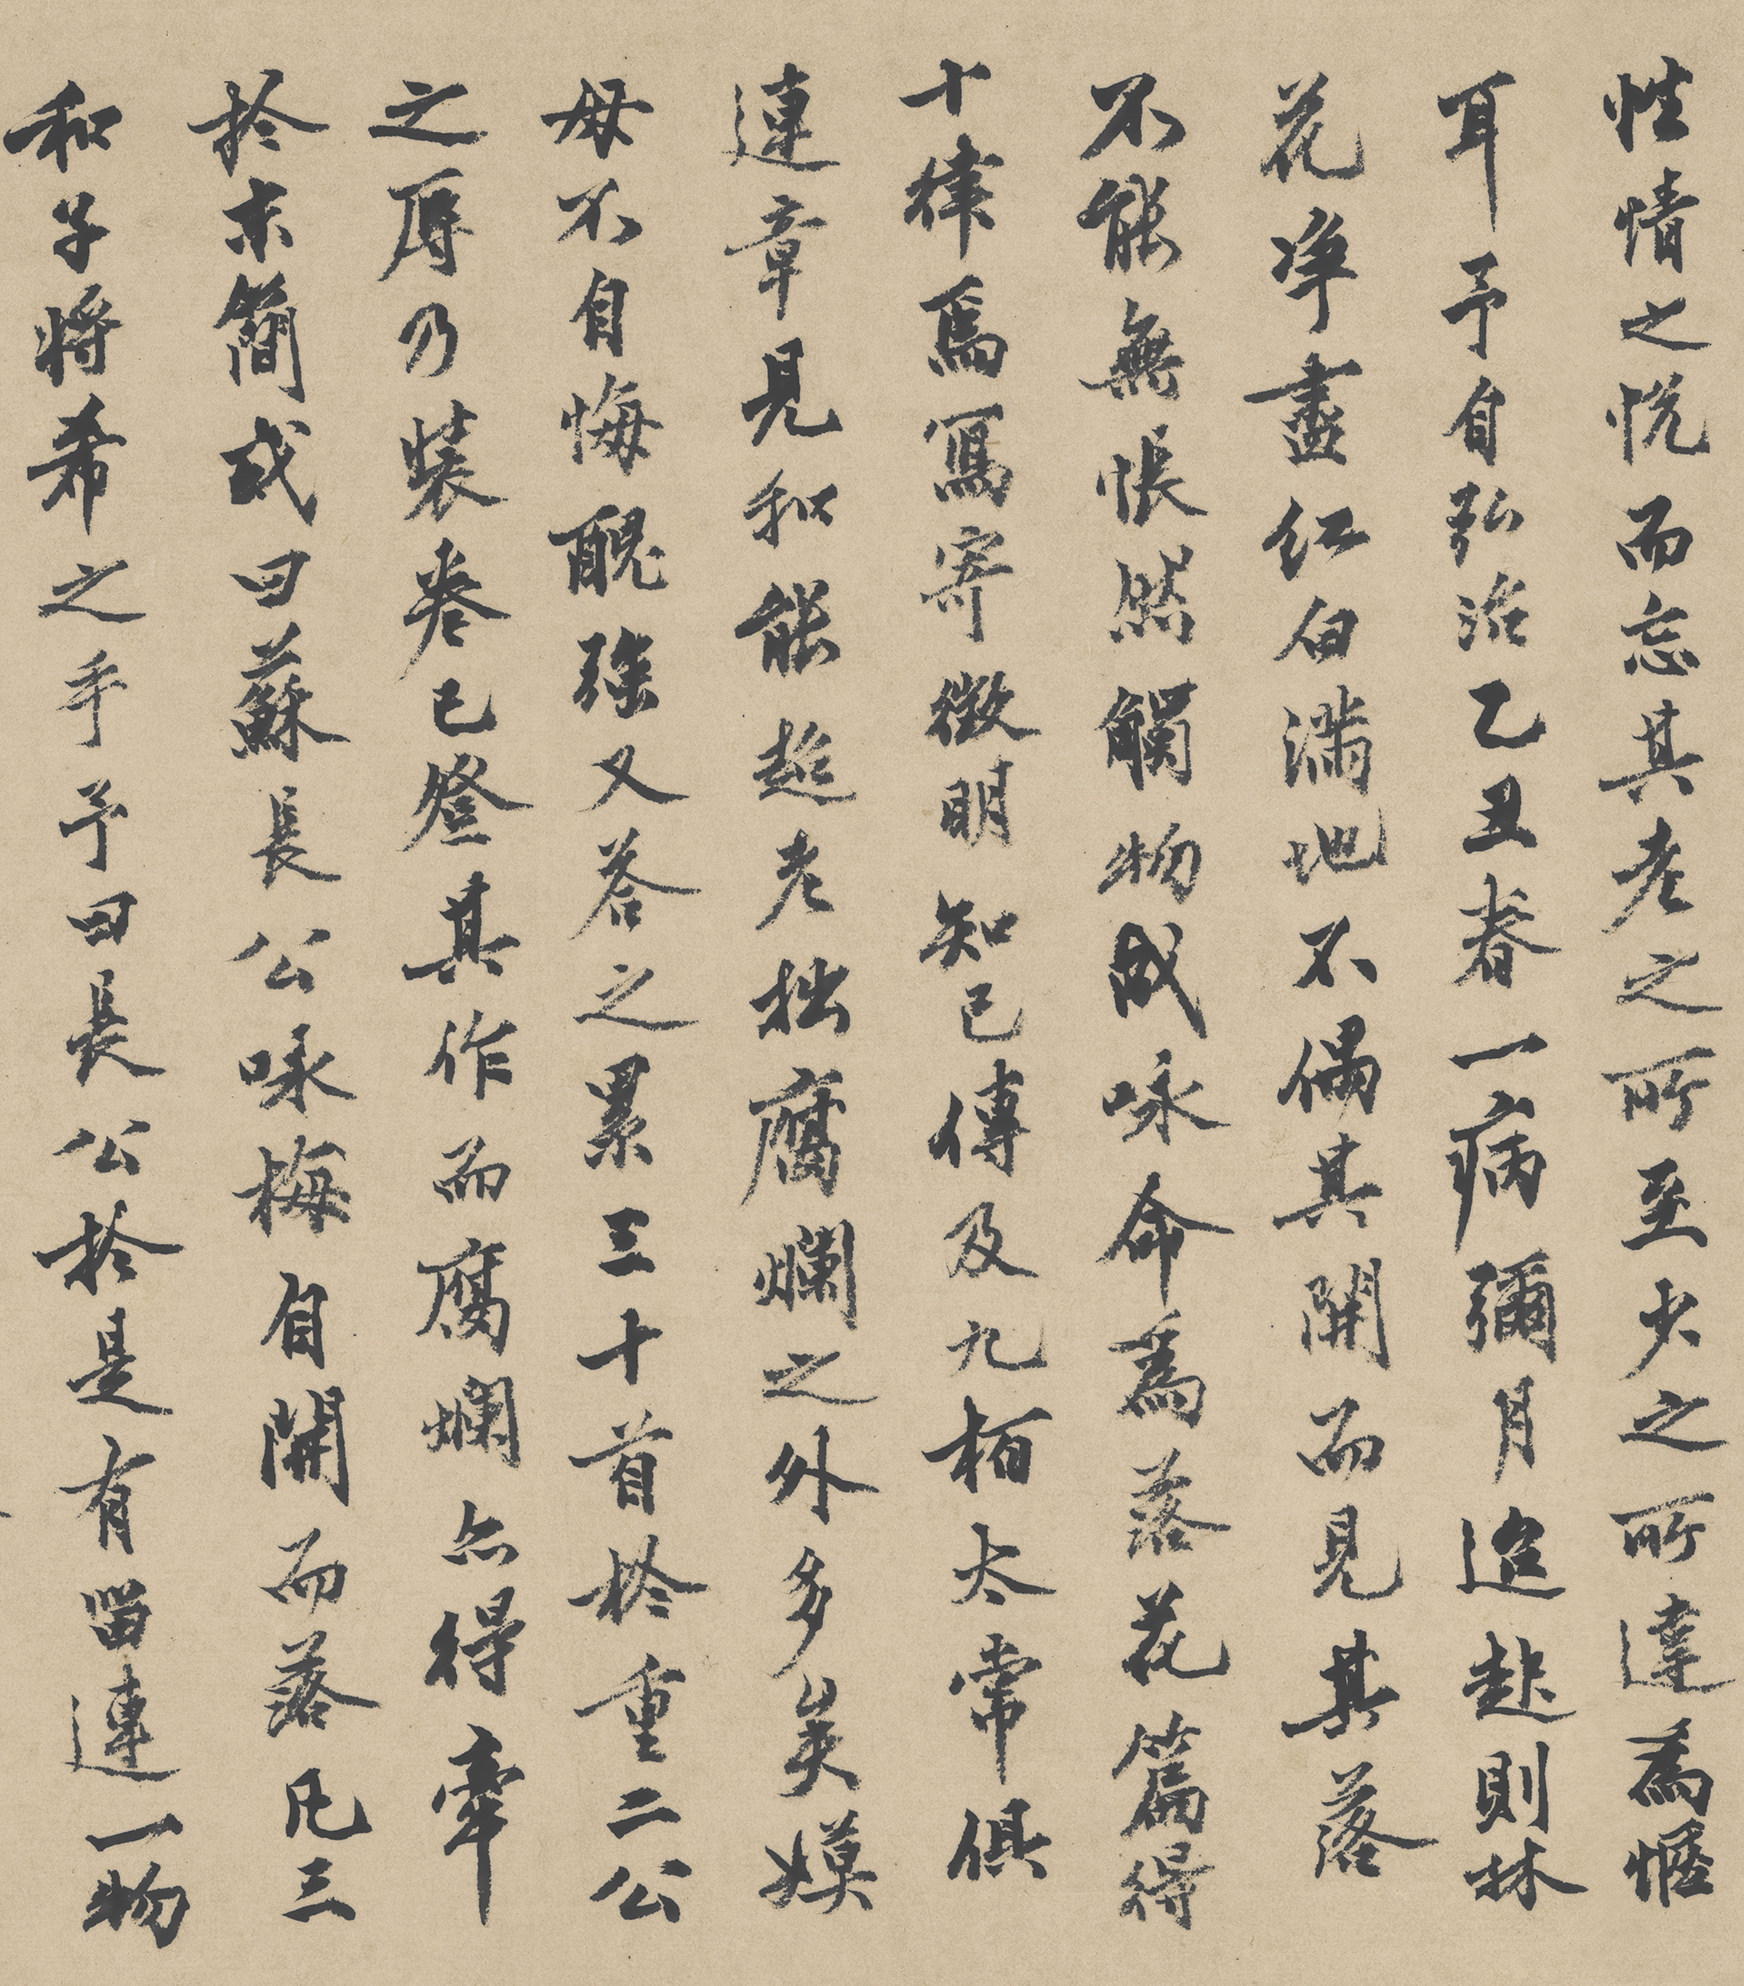 性情之悦而忘其老之所至少之所達為惬
耳予自弘治乙丑春一病彌月迨起則林
花净盡紅白滿地不偶其開而見其落
不能無悵然觸物成咏命為落花篇得
十律焉寫寄徵明知己傳及九栢太常俱
連章見和能超老拙腐爛之外多矣嫫
母不自悔醜强又荅之累三十首於重二公
之辱乃装卷已登其作而腐爛亦得牽
於末簡或曰蘇長公咏梅自開而落凡三
和子將希之乎予曰長公於是有留連一物